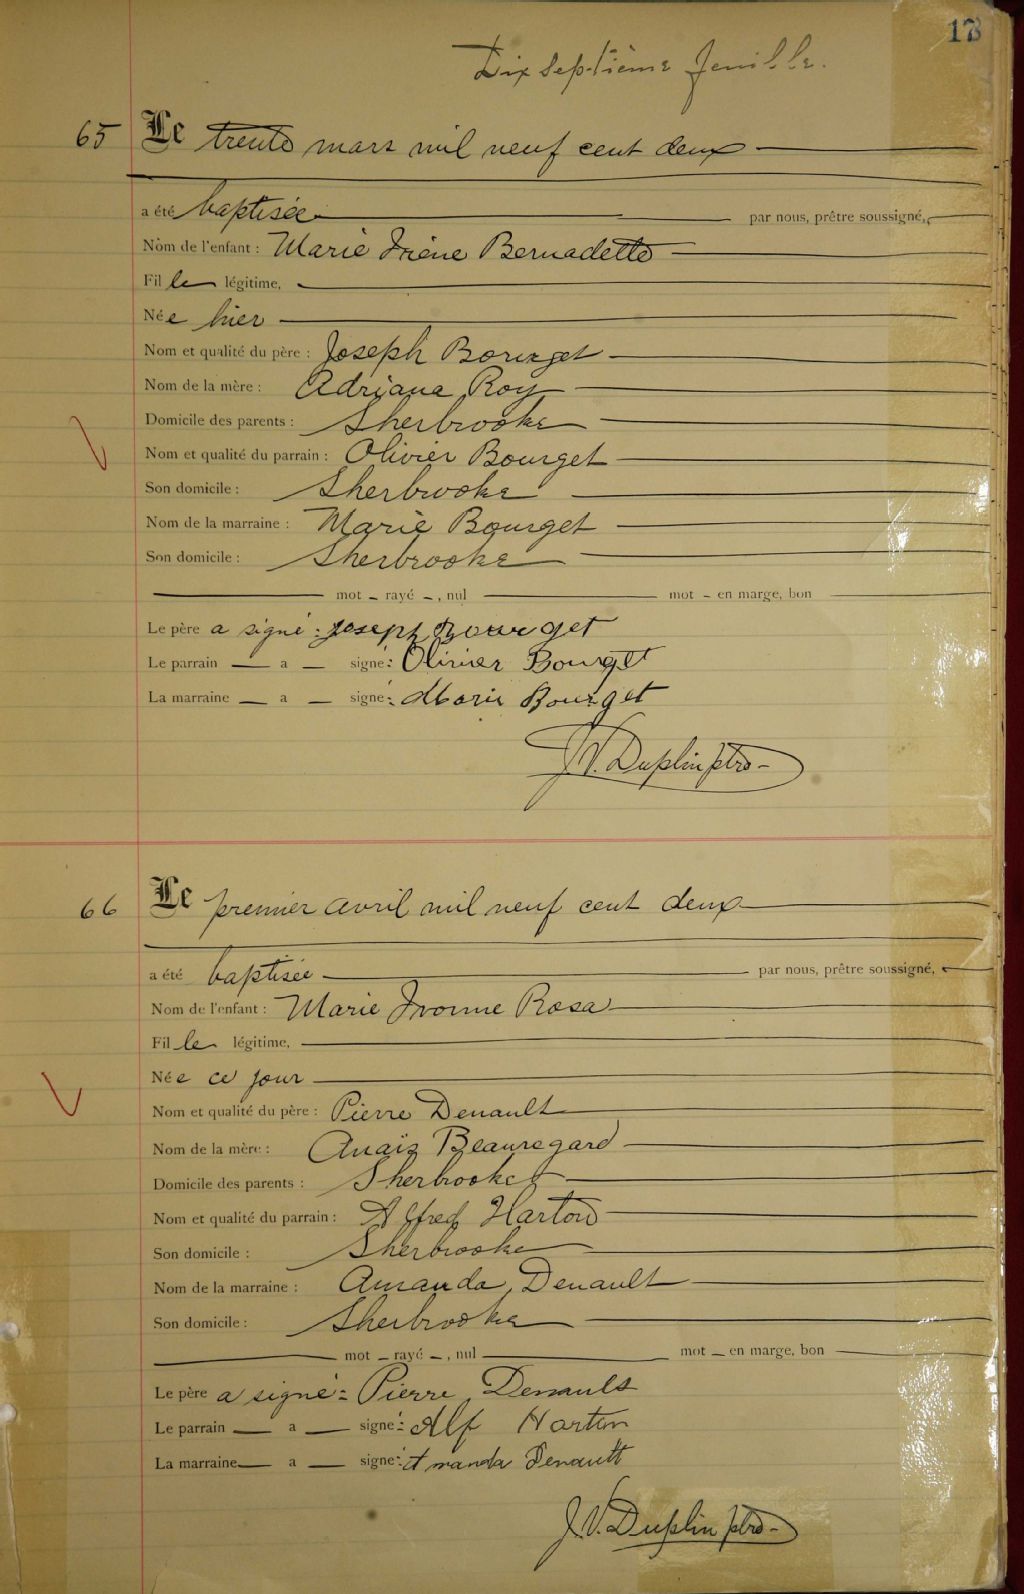 17
Dix septième feuille.
65 Le trente mars mil neuf cent deux
a été baptisée par nous, prêtre soussigné,
Nom de l'enfant : Marie Irène Bernadette
Fille légitime,
Née hier
Nom et qualité du père : Joseph Bourget
Nom de la mère : Adriana Roy
Domicile des parents : Sherbrooke
Nom et qualité du parrain : Olivier Bourget
Son domicile : Sherbrooke
Nom de la marraine : Marie Bourget
Son domicile : Sherbrooke
mot - rayé -, nul mot - en marge, bon
Le père a signé : Joseph Bourget
Le parrain — a — signé : Olivier Bourget
La marraine — a — signé : Marie Bourget
J. V. Duplin ptre
66 Le premier avril mil neuf cent deux
a été baptisée par nous, prêtre soussigné,
Nom de l'enfant : Marie Ivonne Rosa
Fille légitime,
Née ce jour
Nom et qualité du père : Pierre Denault
Nom de la mère : Anaïs Beauregard
Domicile des parents : Sherbrooke
Nom et qualité du parrain : Alfred Harton
Son domicile : Sherbrooke
Nom de la marraine : Amanda Denault
Son domicile : Sherbrooke
mot — rayé —, nul mot — en marge, bon
Le père a signé : Pierre Denault
Le parrain — a — signé : Alf Harton
La marraine — a — signé : Amanda Denault
J. V. Duplin ptre